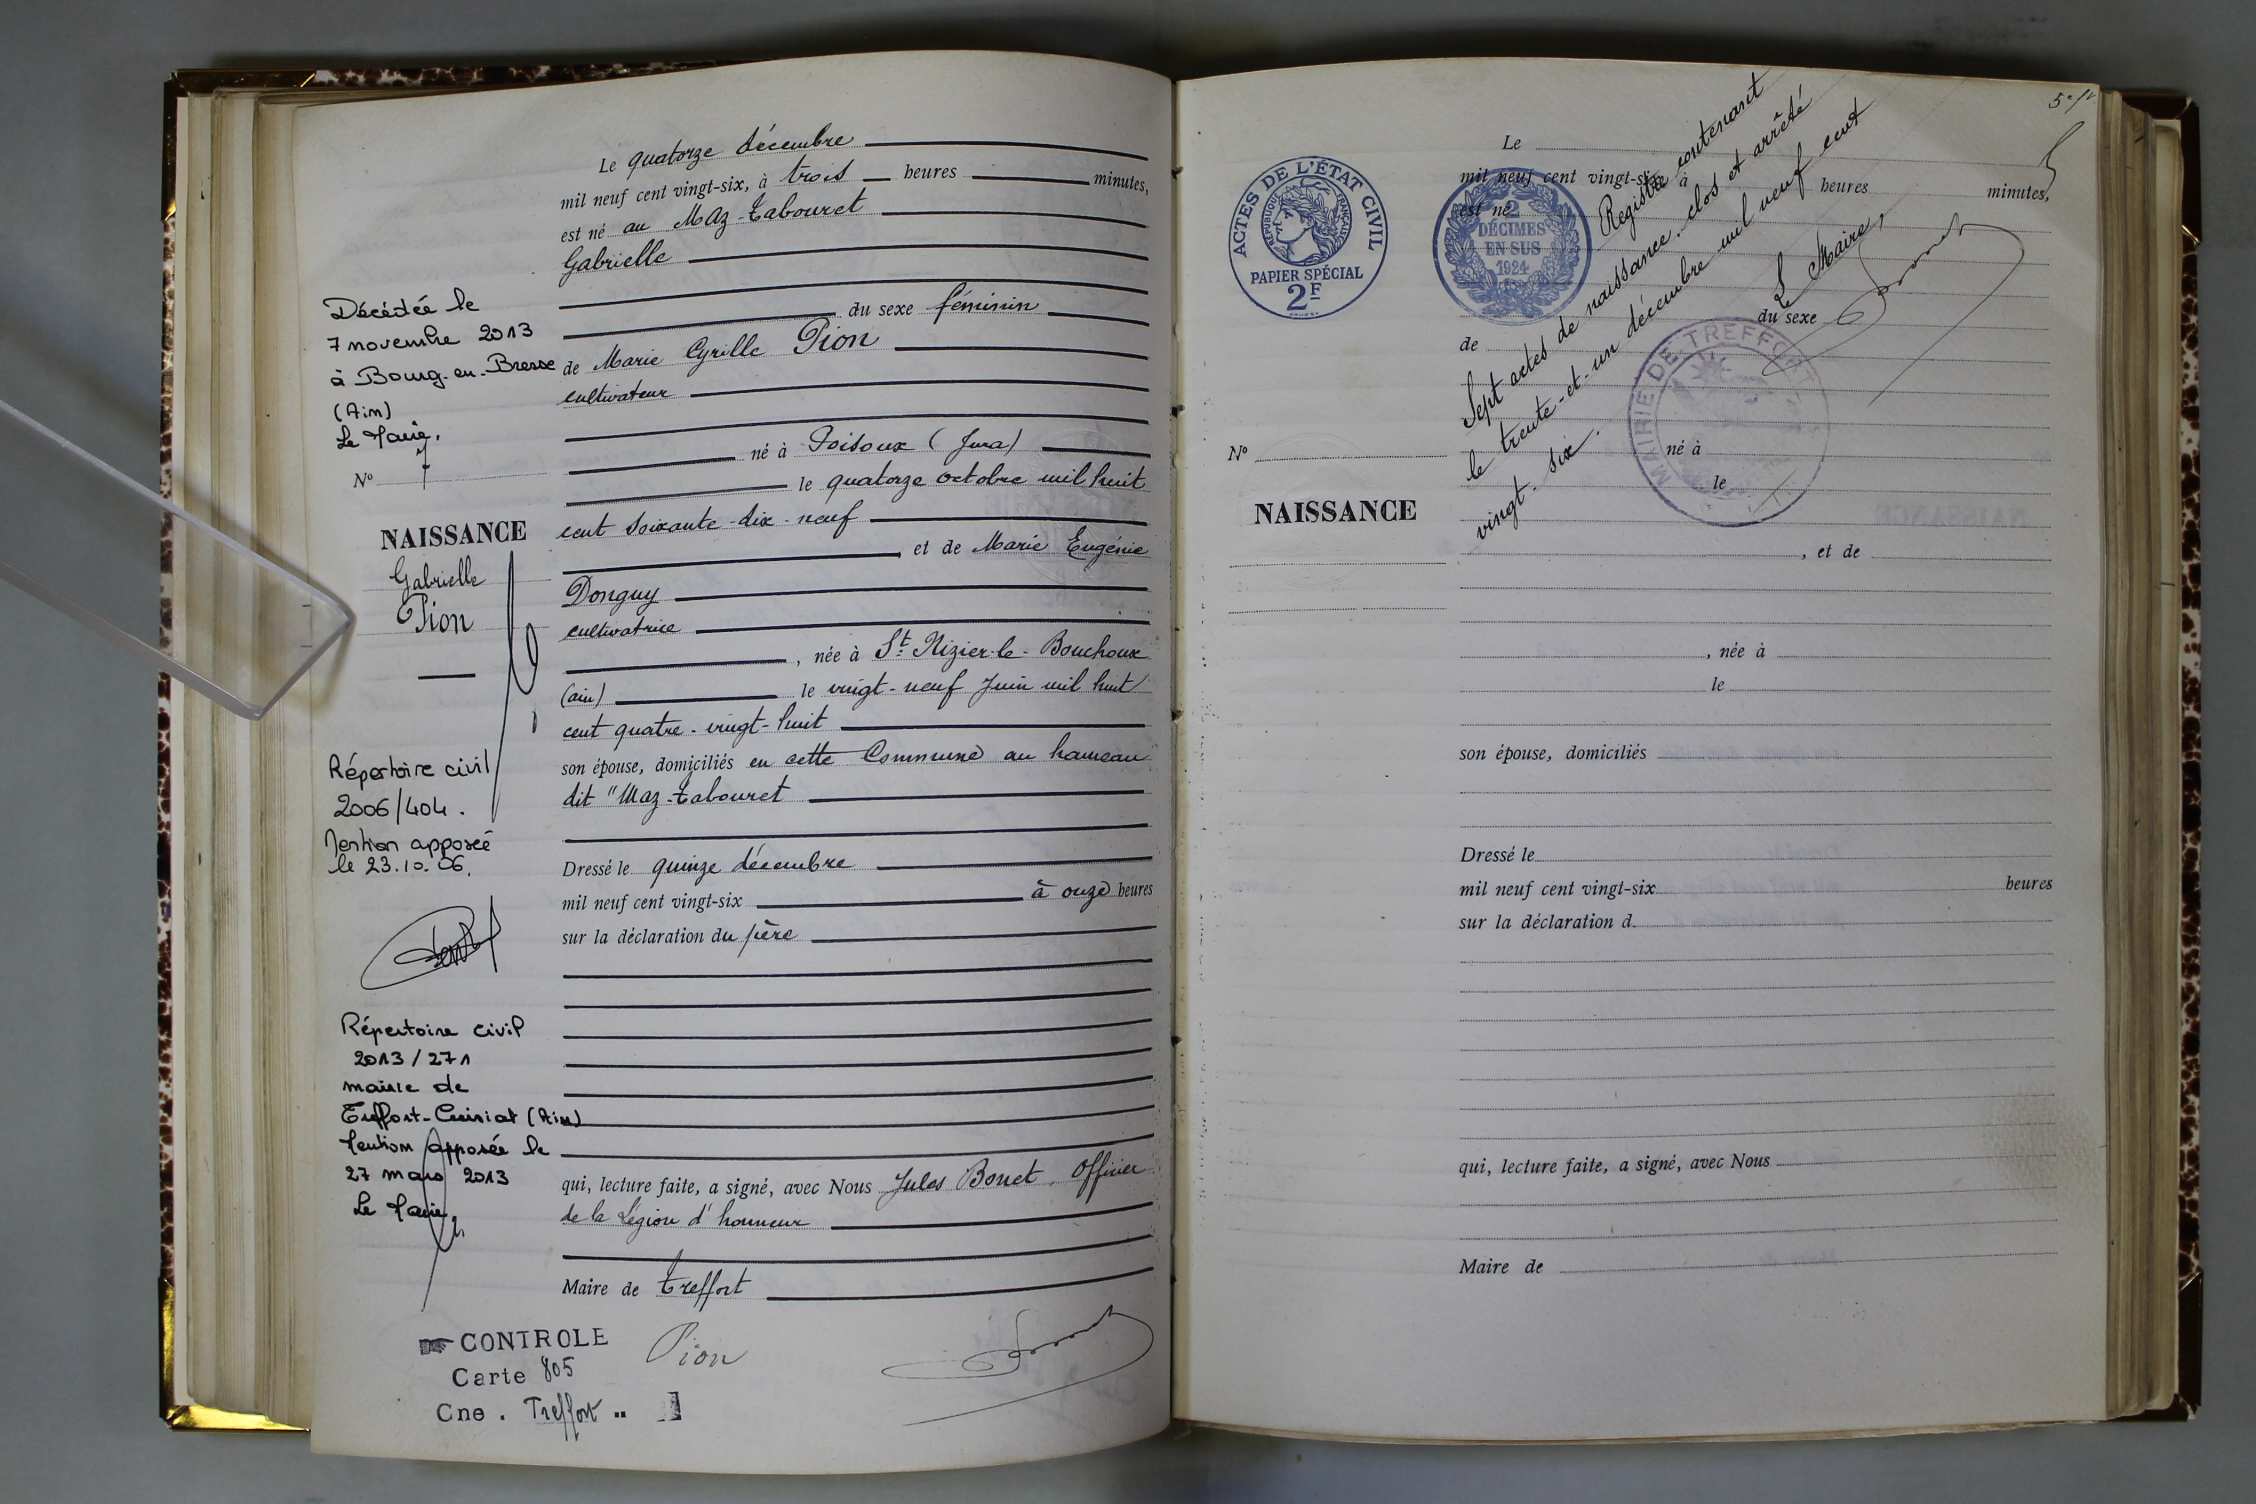 Le quatorze décembre
mil neuf cent vingt-six, à trois heures minutes,
est né au Maz-Tabouret
Gabrielle
du sexe féminin
de Marie Cyrille Pion
cultivateur
né à Poisoux (Jura)
le quatorze octobre mil huit
cent soixante-dix-neuf
, et de Marie Eugénie
Donguy
cultivatrice
, née à St Nizier-le-Bouchoux
(ain) le vingt-neuf Juin mil huit
cent quatre-vingt-huit
son épouse, domiciliés en cette Commune au hameau
dit "Maz-Tabouret
Dressé le quinze décembre
mil neuf cent vingt-six à onze heures
sur la déclaration du père
qui, lecture faite, a signé, avec Nous Jules Bonet. Officier
de la Légion d'honneur
Maire de Treffort
Pion
Décédée le
7 novembre 2013
à Bourg-en-Bresse
(Ain)
Le Maire,
No
NAISSANCE
Gabrielle
Pion
Répertoire civil
2006/404.
Mention apposée
le 23.10.06.
Répertoire civil
2013/271
mairie de
Treffort-Cuisiat (Ain)
Mention apposée le
27 mars 2013
Le Maire,
CONTROLE
Carte 805
Cne. Treffort
ACTES DE L'ÉTAT CIVIL
RÉPUBLIQUE FRANÇAISE
PAPIER SPÉCIAL
2F
2
DÉCIMES
EN SUS
1924
Le
mil neuf cent vingt-six à heures minutes,
est né
du sexe
de
né à
le
, et de
, née à
le
son épouse, domiciliés
Dressé le
mil neuf cent vingt-six heures
sur la déclaration d
qui, lecture faite, a signé, avec Nous
Maire de
No
NAISSANCE
Registre contenant
Sept actes de naissance. clos et arrêté
le trente-et-un décembre mil neuf cent
vingt-six.
Le Maire,
MAIRIE DE TREFFORT